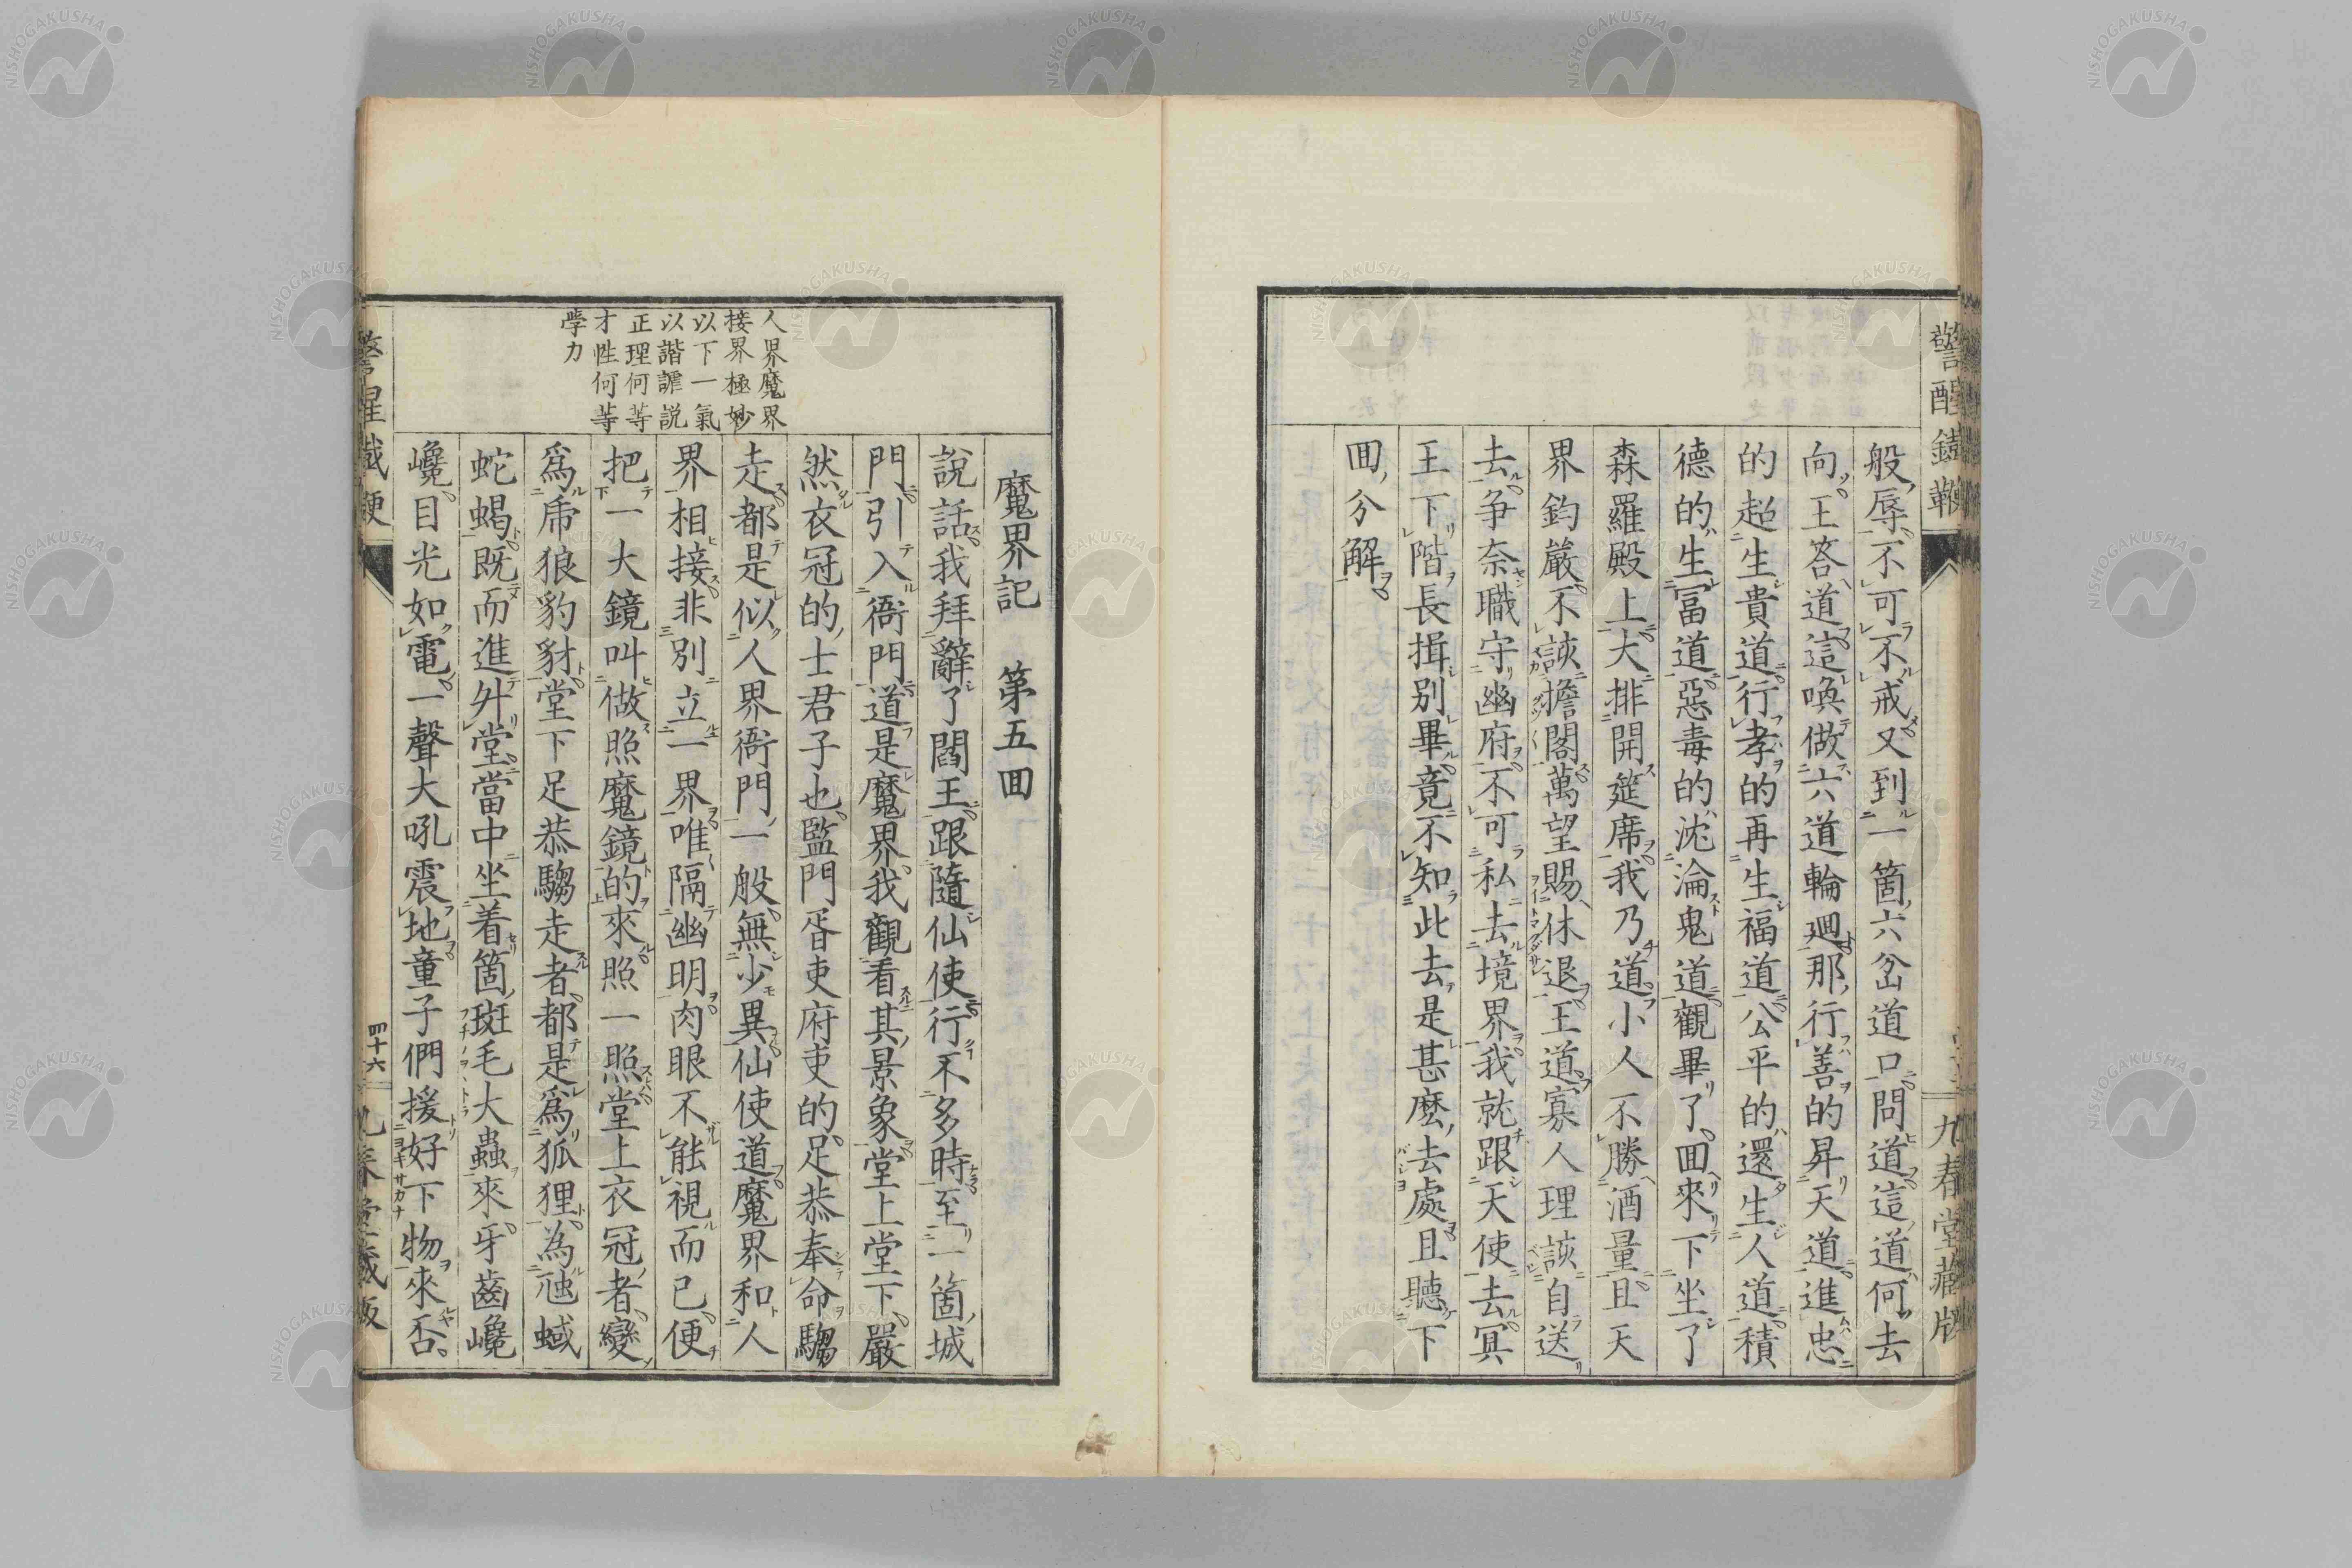 警醒鐵鞭
九春堂藏版
般辱不可不戒又到一箇六岔道口問道這道何去
向王答道這喚做六道輪廻那行善的昇天道進忠
的超生貴道行孝的再生福道公平的還生人道積
德的生冨道惡毒的沈淪鬼道觀畢了囬來下坐了
森羅殿上大排開筵席我乃道小人不勝酒量且天
界鈞嚴不該擔閣萬望賜休退王道寡人理該自送
去争奈職守幽府不可私去境界我就跟天使去冥
王下階長揖別畢竟不知此去是甚麽去處且聽下
囬分解
人界魔界
接界極妙
以下一氣
以諧謔説
正理何等
才性何等
學力
魔界記 第五囬
說話我拜辭了閻王跟隨仙使行不多時至一箇城
門引入衙門道是魔界我觀看其景象堂上堂下嚴
然衣冠的士君子也監門胥吏府吏的足恭奉命騶
走都是似人界衙門一般無少異仙使道魔界和人
界相接非別立一界唯隔幽明肉眼不能視而已便
把一大鏡叫做照魔鏡的來照一照堂上衣冠者變
爲乕狼豹豺堂下足恭騶走者都是爲狐狸為虺蜮
蛇蝎既而進舛堂當中坐着箇斑毛大蟲來牙齒巉
巉目光如電一聲大吼震地童子們援好下物來否
四十六